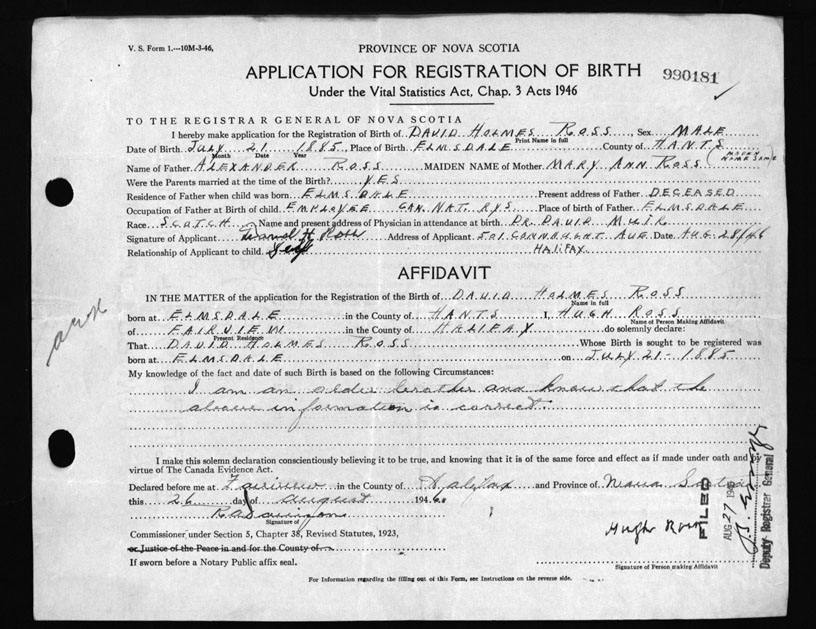 V. S. Form 1.—10M-3-46,
PROVINCE OF NOVA SCOTIA
APPLICATION FOR REGISTRATION OF BIRTH
990181
Under the Vital Statistics Act, Chap. 3 Acts 1946
TO THE REGISTRAR GENERAL OF NOVA SCOTIA
I hereby make application for the Registration of Birth of DAVID HOLMES ROSS, Sex MALE
Print Name in full
Date of Birth JULY 21 1885, Place of Birth ELMSDALE County of HANTS
Month Date Year
Name of Father ALEXANDER ROSS MAIDEN NAME of Mother MARY ANN ROSS (MAIDEN NAME SAME)
Were the Parents married at the time of the Birth? YES
Residence of Father when child was born ELMSDALE Present address of Father DECEASED
Occupation of Father at Birth of child EMPLOYEE CAN. NAT. RYS Place of birth of Father ELMSDALE
Race SCOTCH Name and present address of Physician in attendance at birth DR. DAVID MUIR.
Signature of Applicant David H Ross Address of Applicant 501 CONNAUGHT AVE Date AUG 28/46
Relationship of Applicant to child Self HALIFAX
AFFIDAVIT
IN THE MATTER of the application for the Registration of the Birth of DAVID HOLMES ROSS
Name in full
born at ELMSDALE in the County of HANTS I, HUGH ROSS
Name of Person Making Affidavit
of FAIRVIEW in the County of HALIFAX do solemnly declare:
Present Residence
That DAVID HOLMES ROSS Whose Birth is sought to be registered was
born at ELMSDALE on JULY 21 - 1885
My knowledge of the fact and date of such Birth is based on the following Circumstances:
I am an older brother and know that the
above information is correct.
I make this solemn declaration conscientiously believing it to be true, and knowing that it is of the same force and effect as if made under oath and by
virtue of The Canada Evidence Act.
Declared before me at Fairview in the County of Halifax and Province of Nova Scotia
this 26 day of August 1946
Signature of
Hugh Ross
Commissioner under Section 5, Chapter 38, Revised Statutes, 1923,
or Justice of the Peace in and for the County of
If sworn before a Notary Public affix seal.
Signature of Person making Affidavit
FILED
AUG 27 1946
Deputy Registrar General
For Information regarding the filling out of this Form, see Instructions on the reverse side.